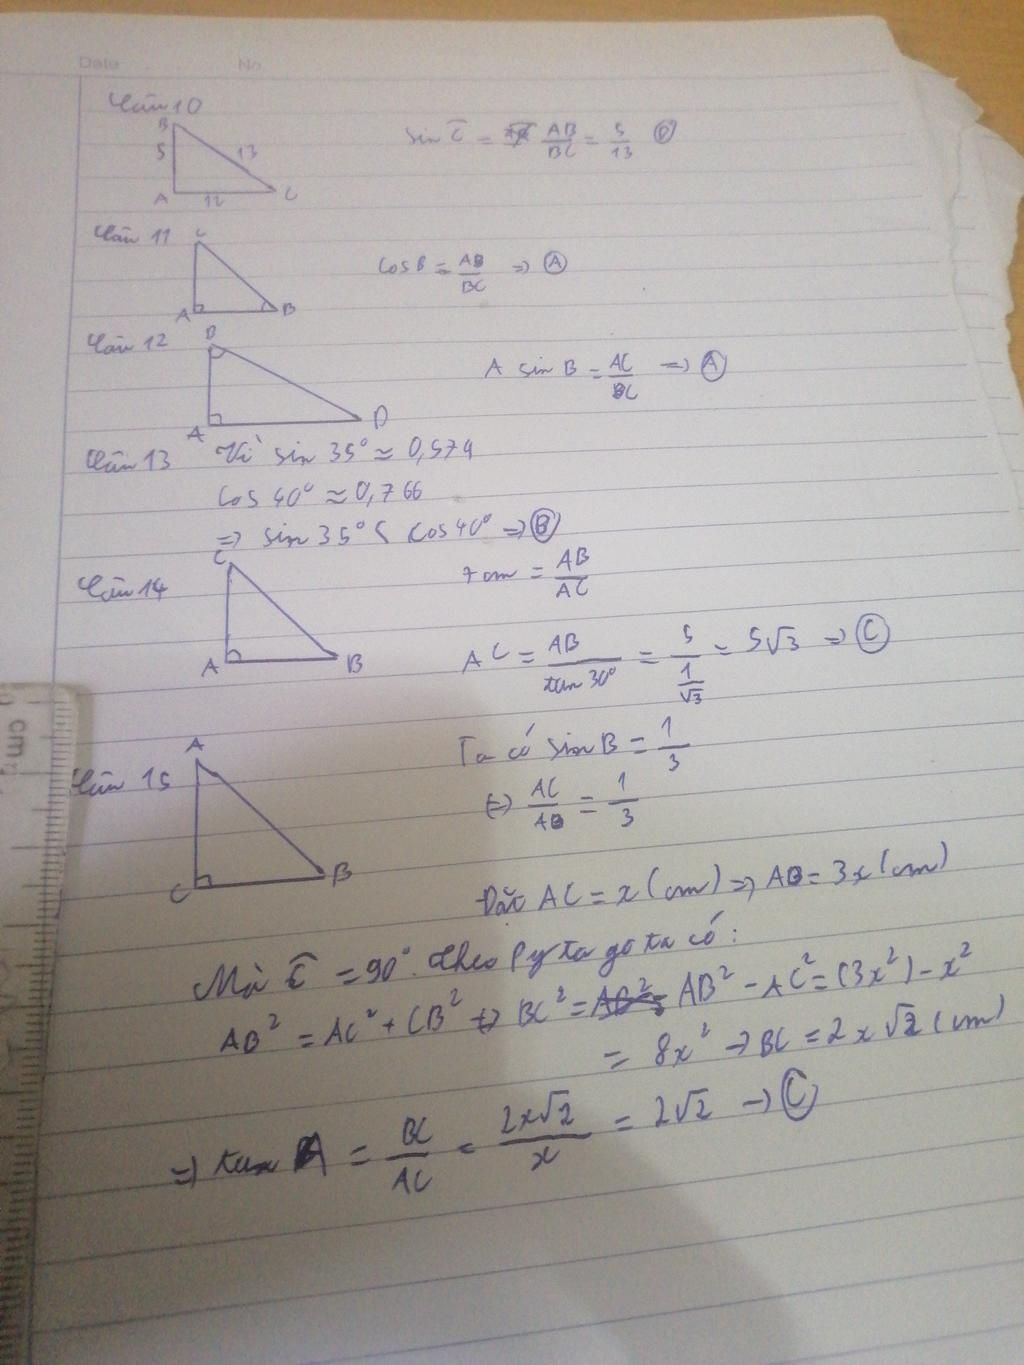 Date No
Câu 10
B
5
13
A
12
C
sin C = AB/BC = 5/13 D
Câu 11
C
A
B
cos B = AB/BC => A
Câu 12
B
A
D
A sin B = AC/BC => A
Câu 13 Vì sin 35° ≈ 0,574
cos 40° ≈ 0,766
=> sin 35° < cos 40° => B
Câu 14
C
A
B
= AB/AC
AC = AB/tan 30° = 5/(1/√3) = 5√3 => C
Câu 15
A
C
B
Ta có sin B = 1/3
<=> AC/AB = 1/3
Đặt AC = x (cm) => AB = 3x (cm)
Mà Ĉ = 90°. Theo Pytago ta có:
AB² = AC² + CB² <=> BC² = AB² - AC² = (3x²) - x²
= 8x² -> BC = 2x√2 (cm)
=> tan A = BC/AC = 2x√2/x = 2√2 -> C
cm